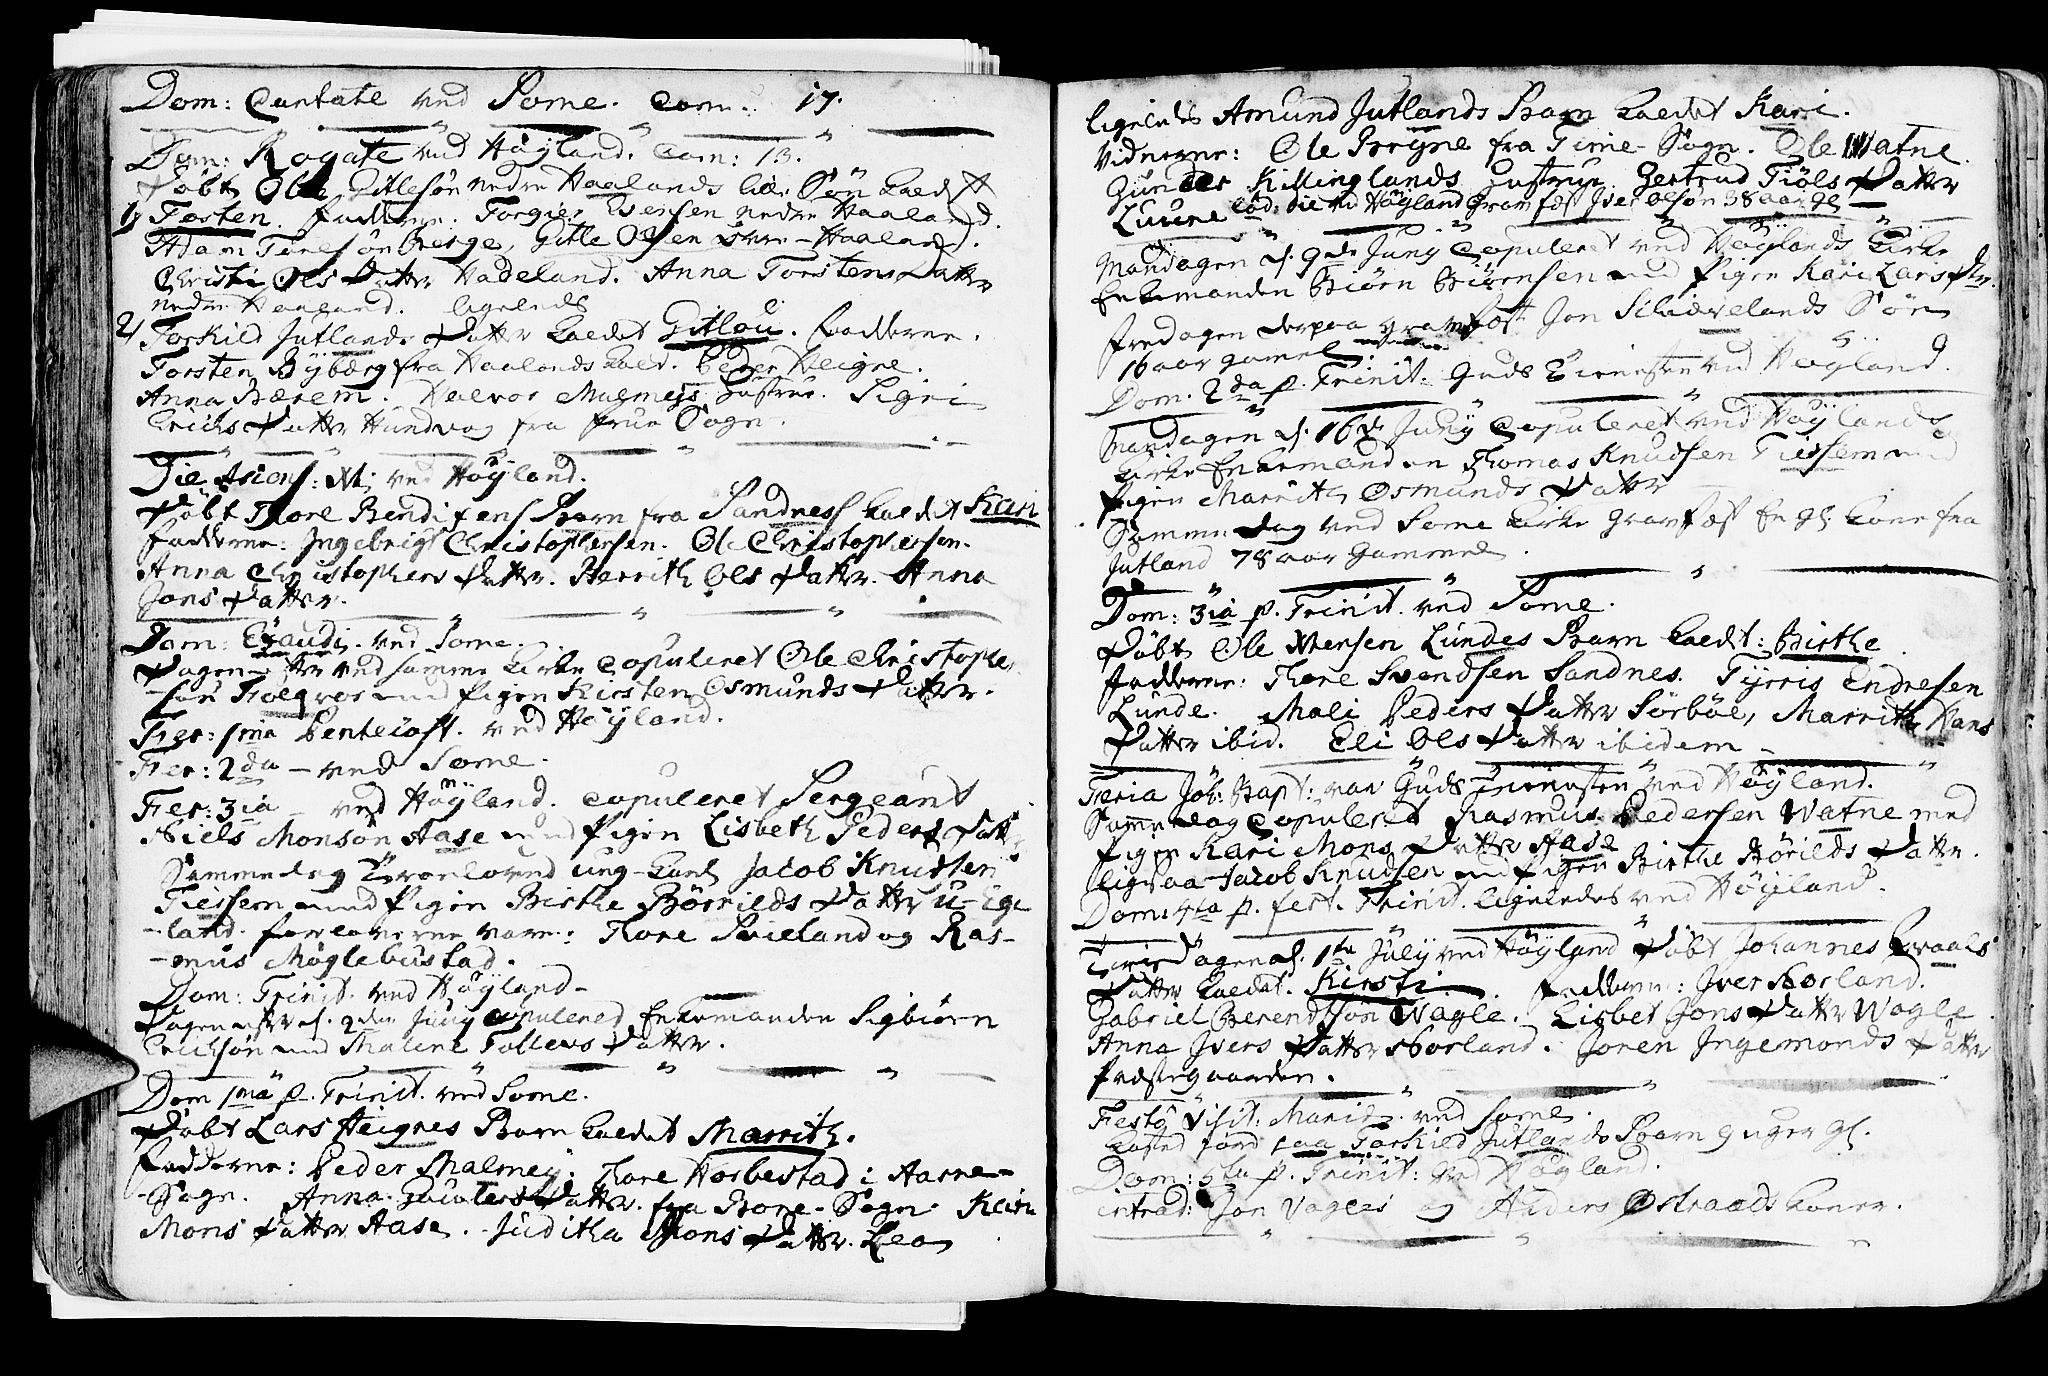 Dom: Cantate ved Some. Com: 17.
Dom: Rogate ved Höyland. Com: 13.
Döbt Ole Gitlesön nedre Haalands Sön kaldet
1) Torsten. Fadderne. Torgier Iversen nedre Haaland.
Adam Berge, Gitle Olsen övre-Haaland.
Christi Ols Datter Hadeland. Anna Torstens Datter
nedre Haaland. ligeleds
2) Torkild Jutlands Datter kaldet Gitlou. Fadderne.
Torsten Byberg fra Haalands Peder Heigre.
Anna Bærem. Halvor Malmeys Hustrue. Sigri
Erichs Datter Hundvog fra frue Sogn.
Die Ascens: ved Höyland.
Döbt Thore Bendixens Barn fra Sandness kaldet Kari
Fadderne: Ingebrigt Christophersen. Ole Christophersen.
Anna Christophers Datter. Berrith Ols Datter. Anna
Jons Datter.
Dom: Exaudi. ved Some.
Dagen ved samme Kirke Copuleret Ole Christopher
sön med Pigen Kirsten Osmunds Datter.
Fer: 1ma Pentecost. ved Höyland.
Fer: 2da - ved Some.
Fer: 3ia - ved Höyland. Copuleret Sergeant
Niels Monsön Aase med Pigen Lisbeth Peders Datter
Samme dag Troloved ung-karl Jacob Knudsen
Tiessem med Pigen Birthe Börrilds Datter u-Ege
-land. forloverne vare: Thore Svieland og Ras-
-mus Möglebustad.
Dom: Trinit. ved Höyland-
Dagen efter d. 2den Juny Copulered Enkemanden Sigbiörn
Erichsön med Malene Tollevs Datter.
Dom 1ma p. Trinit. ved Some.
Döbt Lars Heigres Barn kaldet Marrith.
Fadderne: Peder Malmey. Thore Horbestad i Aarre-
-Sogn. Anna Datter. fra Bore-Sogn. Kari
Mons Datter Aase. Juditha Mons Datter. Lea
ligeleds Amund Jutlands Barn kaldet Kari.
Vidnerne: Ole Bryne fra Time-Sogn. Ole Watne.
Gunder Killinglands Hustrue. Gertrud Tiöls Datter
Luure eod: die ved Höyland Gramfæst Iver Olsön 38 aar gl
Mandagen d. 9de Juny Copuleret ved Höylands Kirke
Enkemanden Biörn Biörnsen med Pigen Kari Lars Dtr.
Fredagen derpaa gramfæst Jon Schievelands Sön
16 aar gamel.
Dom. 2da p. Trinit: Guds Tieneste ved Höyland.
Mandagen d. 16de Juny Copuleret ved Höylands
Kirke Enkemanden Thomas Knudsen Tiessem med
Pigen Marrithe Osmunds Datter
Samme dag ved Some Kirke gramfæst En gl Kone fra
Jutland 78 aar Gammel.
Dom: 3ia p. Trinit. ved Some.
Döbt Ole Lundes Barn kaldet: Birthe
Fadderne: Thore Svendsen Sandnes. Tyrris Endresen
Lunde. Mali Peders Datter Sörböe, Marrithe Hans
Datter ibid. Eli Ols Datter ibidem -
Feria Joh: Bapt: var Guds Tienesten ved Höyland.
Samme dag Copuleret Rasmus Pedersen Watne med
Pigen Kari Mons Datter Aase
ligesaa Jacob Knudsen med Pigen Birthe Börilds Datter.
Dom: 4ta p. fest. Trinit. ligeledes ved Höyland.
Tirsdagen d. 1te July ved Höyland Döbt Johannes
Datter kaldet. Kirsti. Fadderne: Iver Norland.
Gabriel Berendtsön Wagle. Lisbet Jons Datter Wagle.
Anna Ivers Datter Norland. Joren Ingemonds Datter
Præstegaarden.
Festo Visit: Mariæ. ved Some.
kasted Jord paa Torkild Jutlands Barn 9 uger gl.
Dom: 6ta p. Trinit: ved Höyland.
introd: Jon Vagles og Anders Östraads koner.